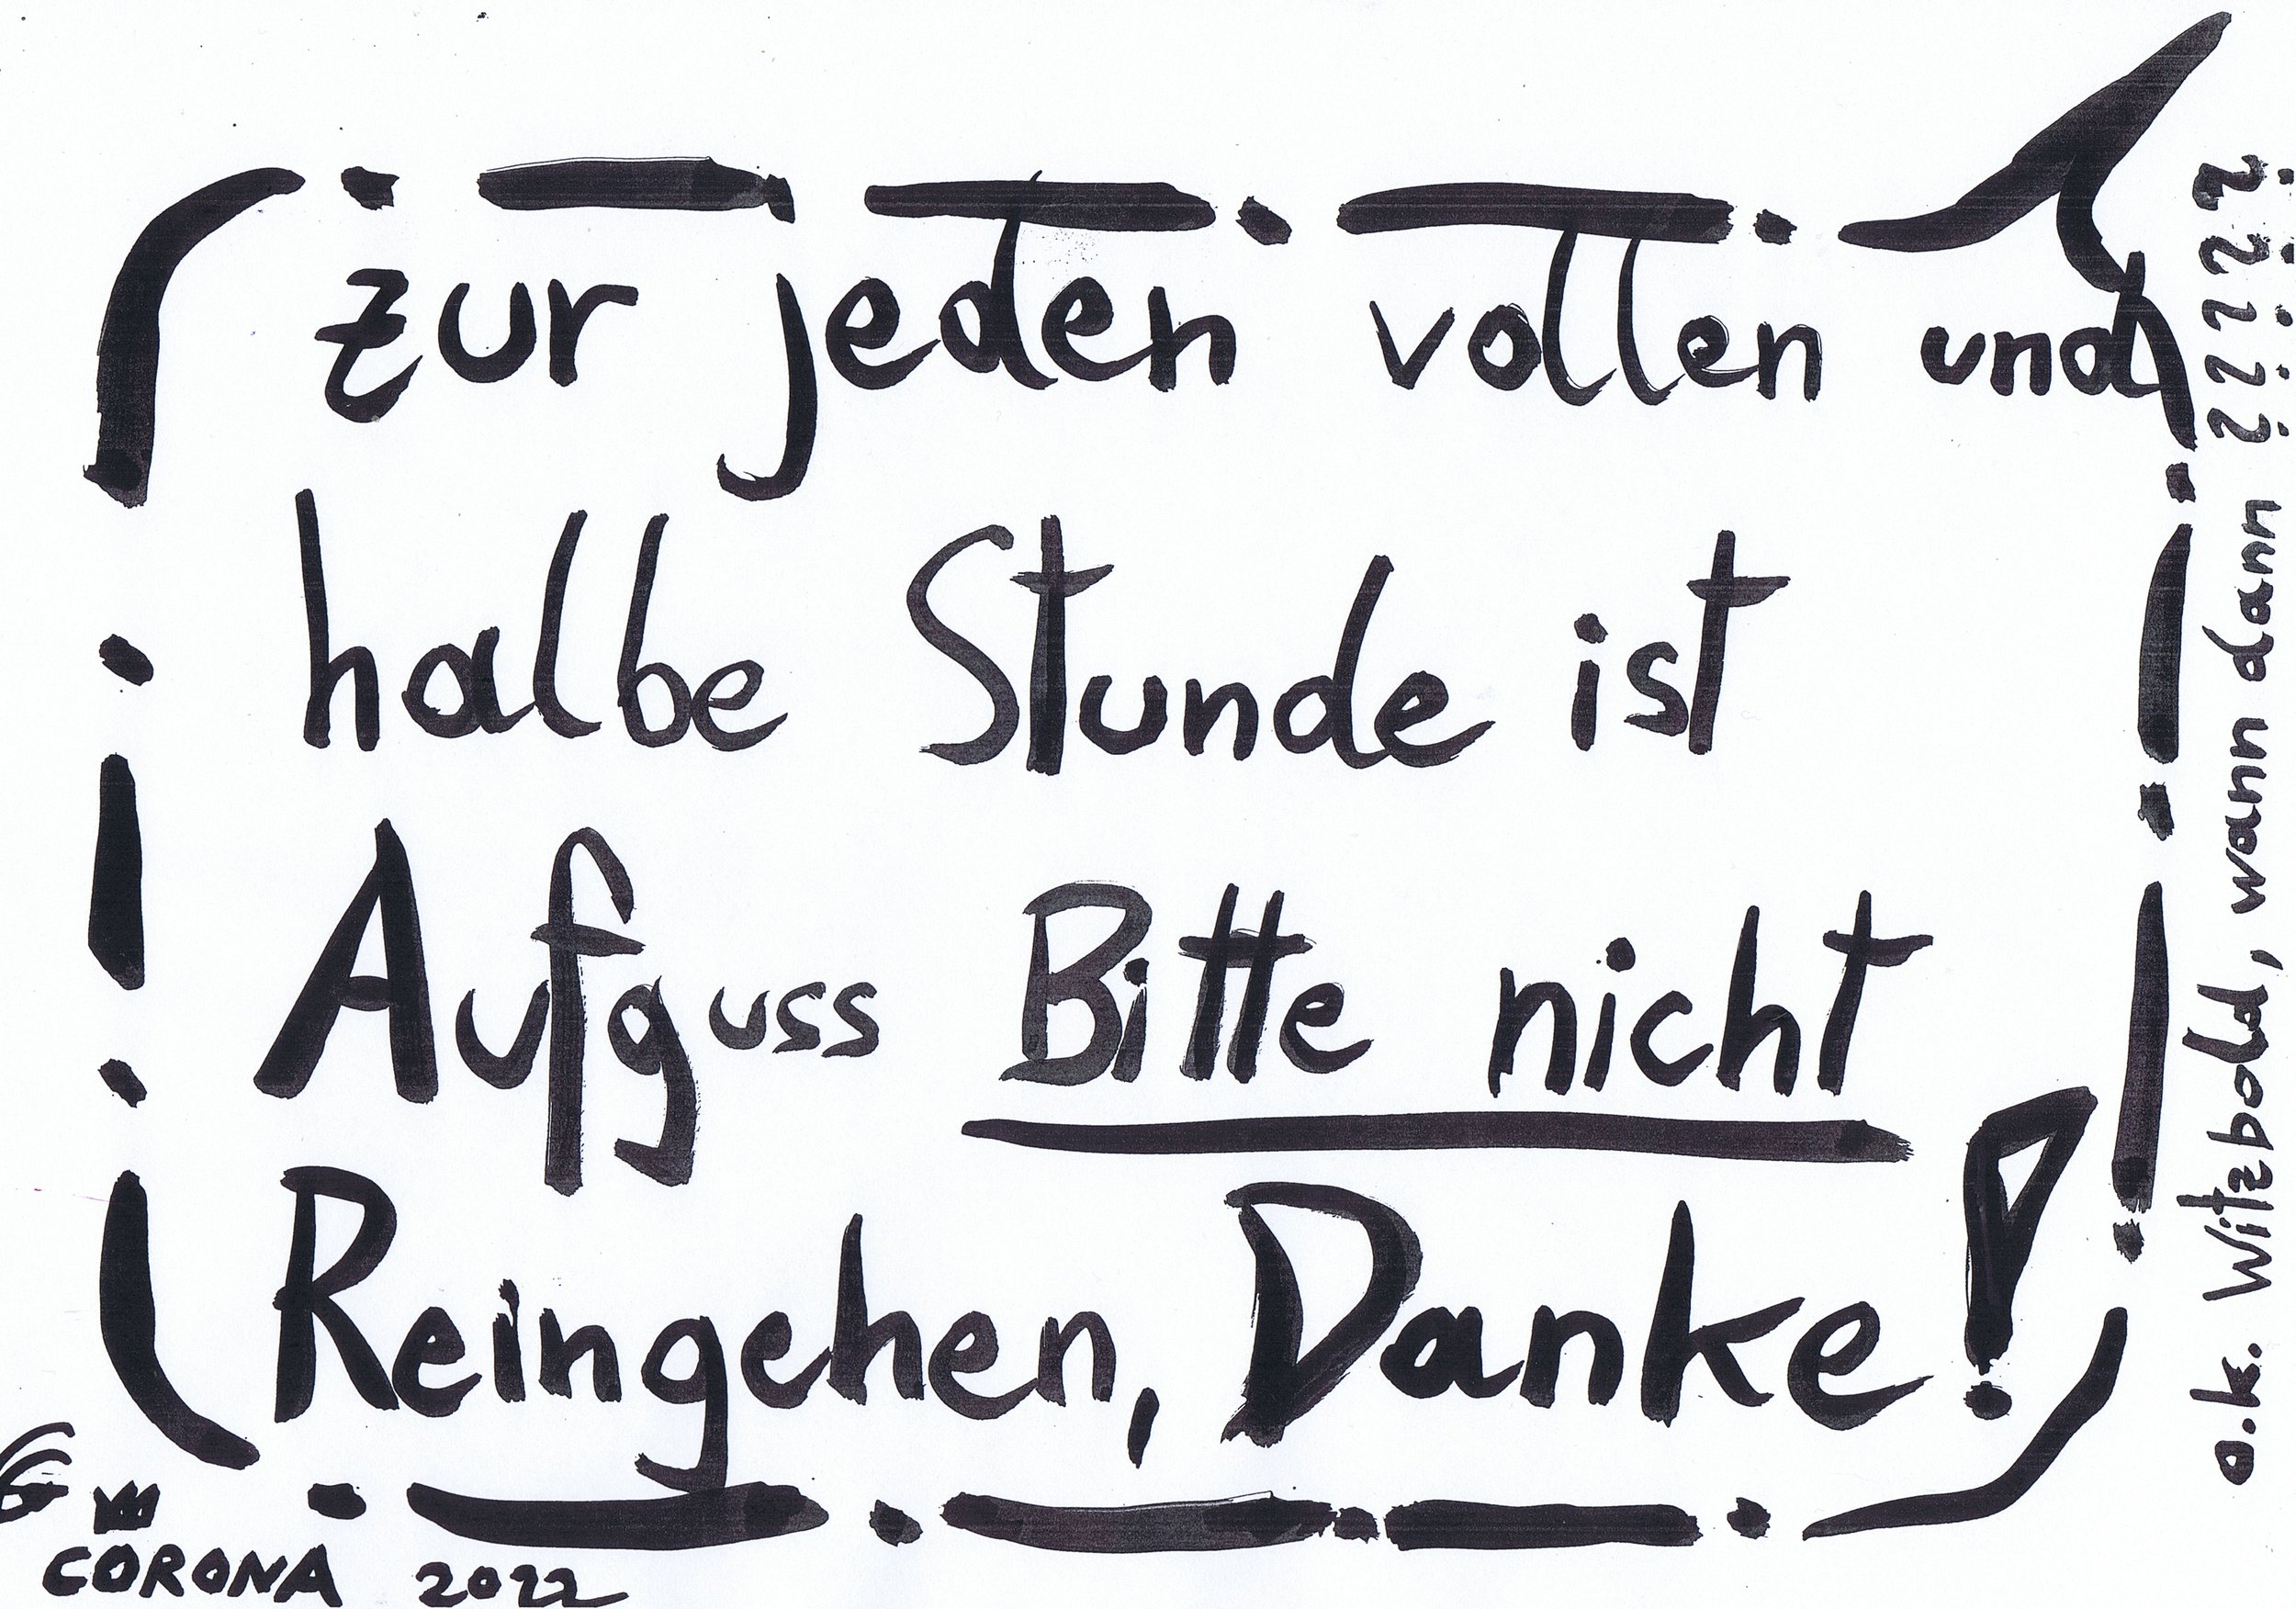 zur jeden vollen und
halbe Stunde ist
Aufguss Bitte nicht
Reingehen, Danke!
o.k. Witzbold, wann dann ? ? ? ? ?
CORONA 2022